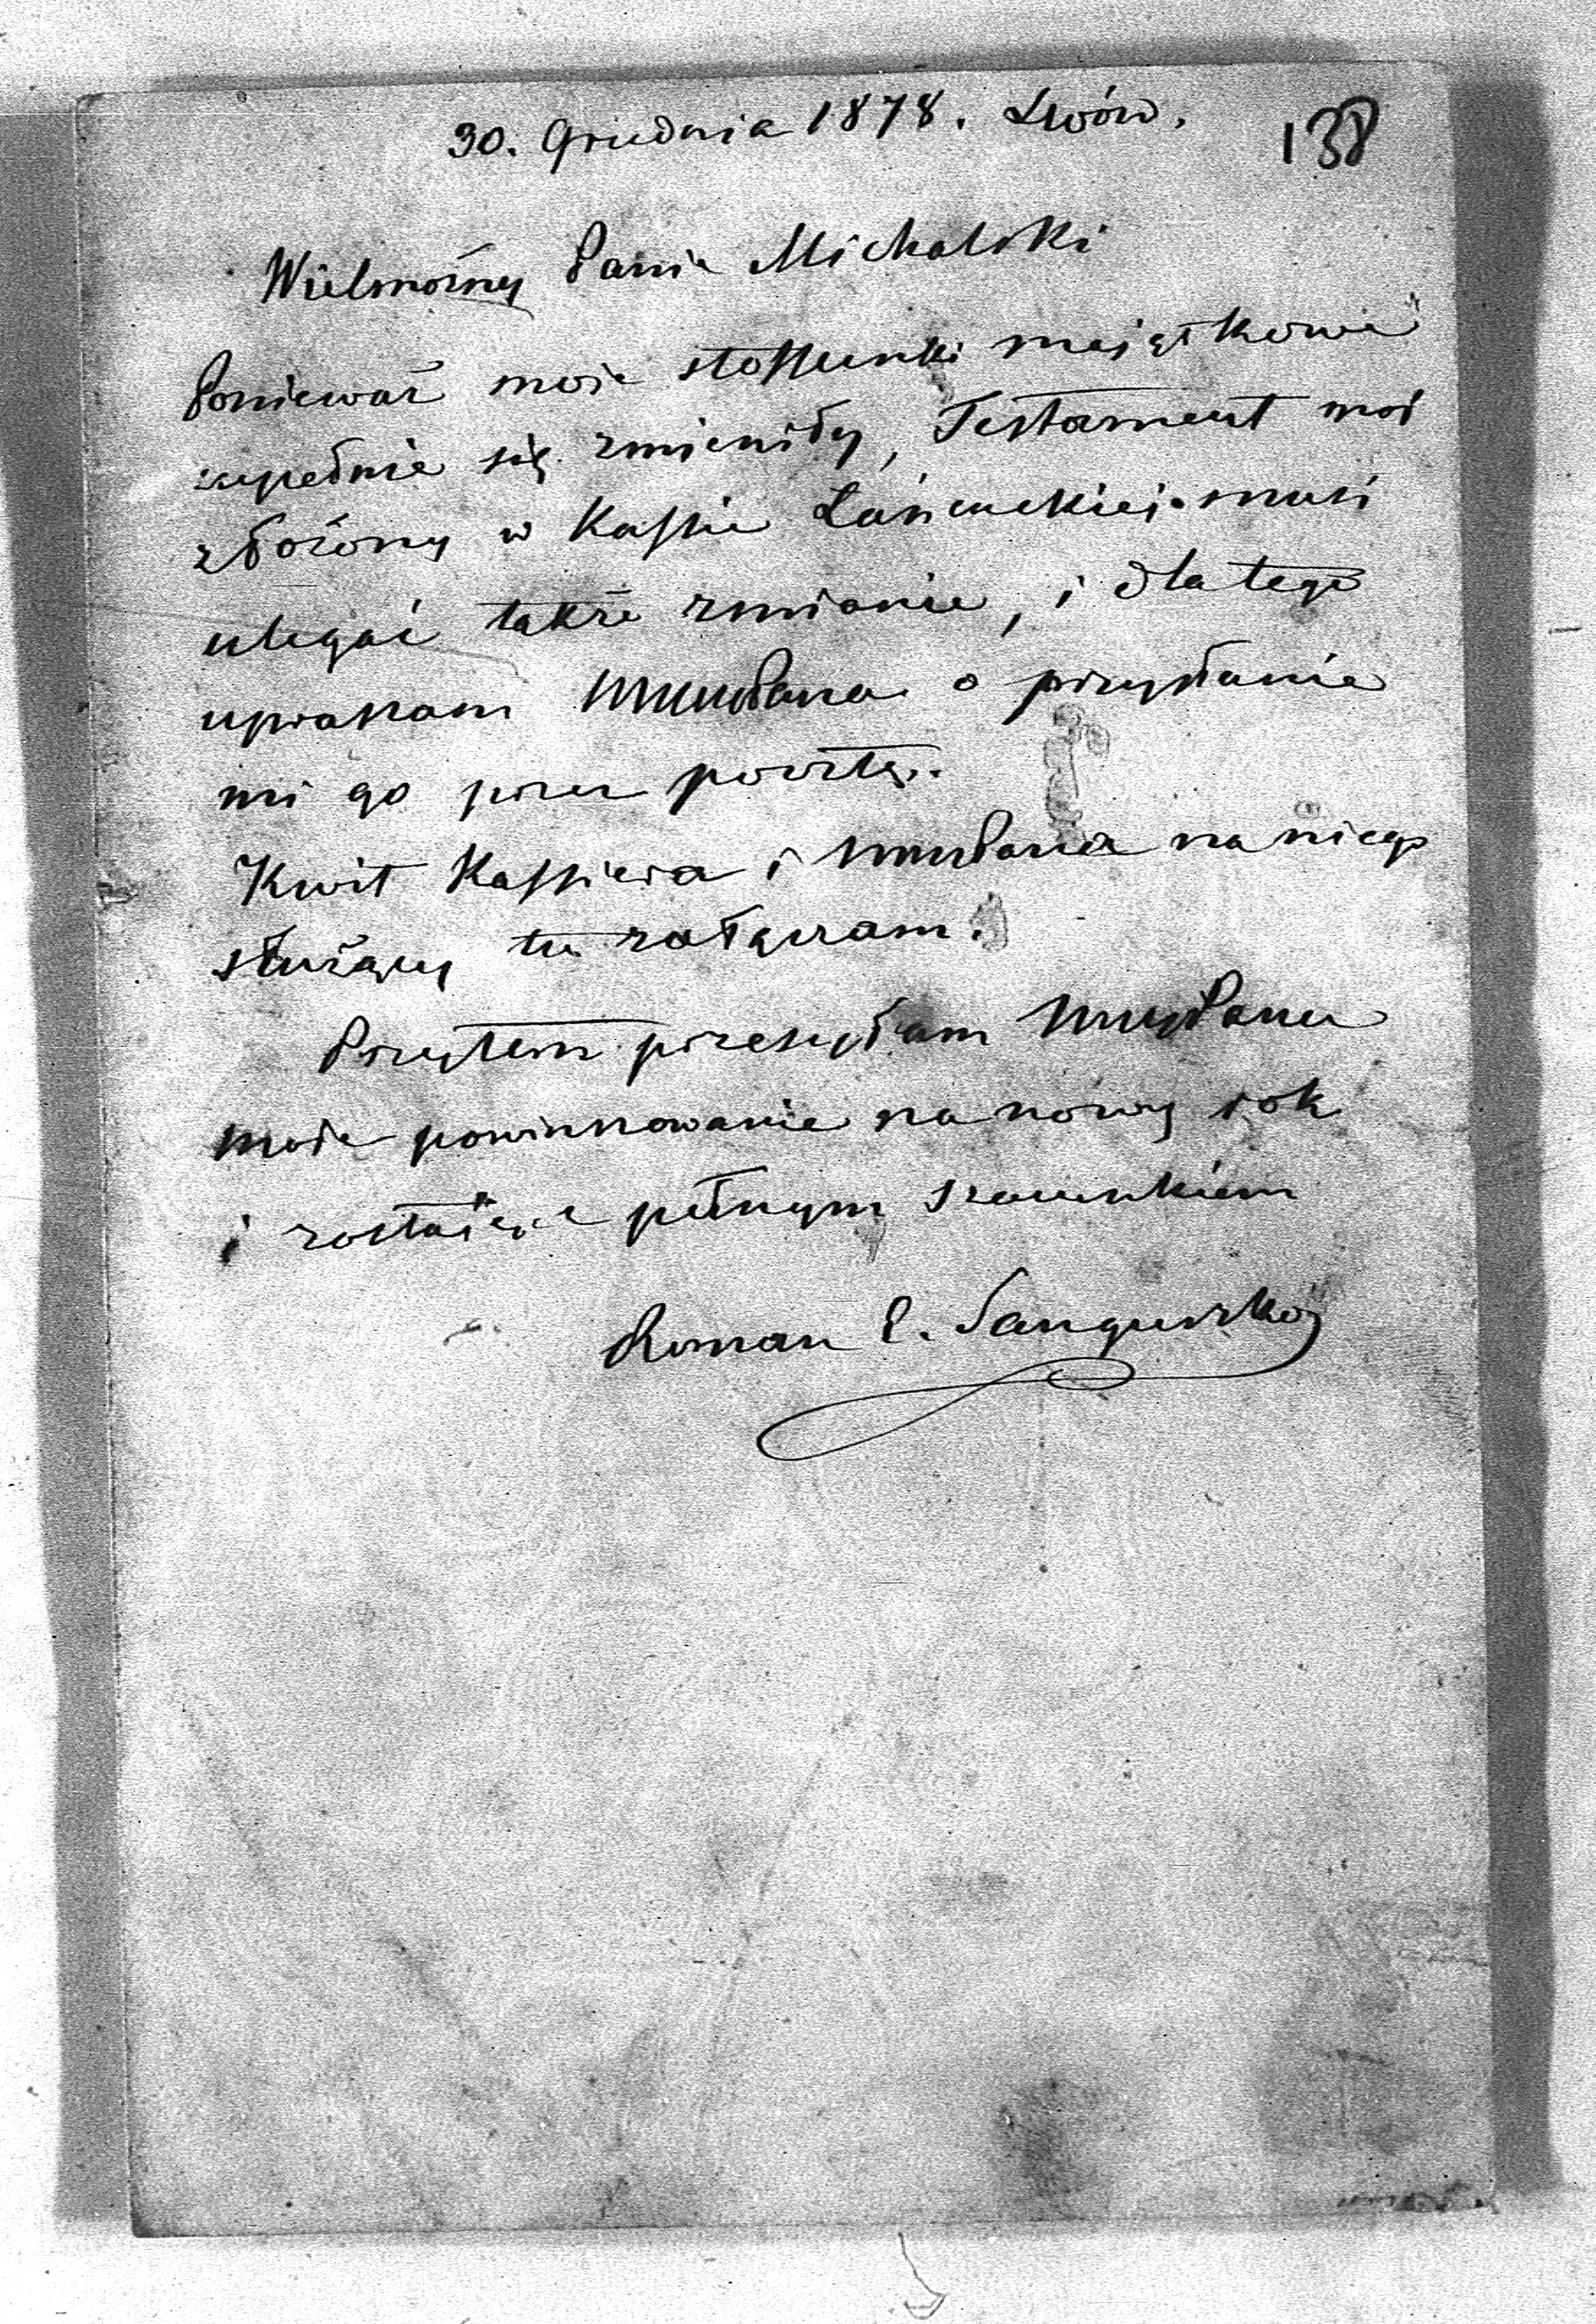 30. Grudnia 1878. Lwów.
138
Wielmożny Panie Michalski
Ponieważ moje stossunki majątkowe
zupełnie się zmieniły, Testament mój
złożony w Kassie Łańcuckiej musi
ulegać także zmianie, i dla tego
upraszam WMMPana o przysłanie
mi go przez pocztę.
Kwit Kassiera i WMMPana na niego
służący tu załączam.
Przytem przesyłam WMMPanu
moje powinszowanie na nowy rok
i zostaję z pełnym szacunkiem
Roman E. Sanguszko